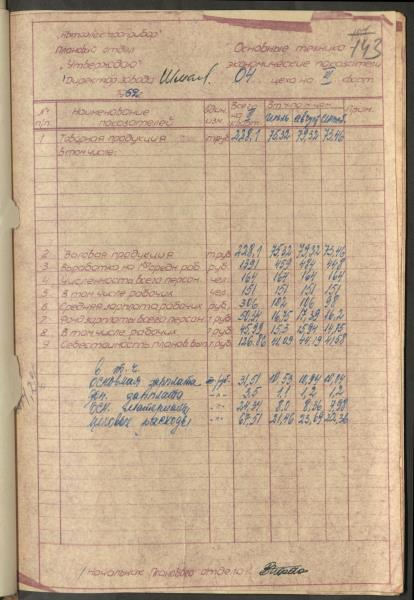 143
"Автоэлектроприбор"
Плановый отдел
"Утверждаю"
Директор завода
Основные технико-
экономические показатели
04 цеха на III кварт.
1962г.
№ п/п Наименование показателей Един. изм. Всего на III кварт. В т.ч. по м-цам Прим.
июль август сентяб.
1 Товарная продукция т.руб. 228,1 75,32 79,32 73,46
В том числе:
2 Валовая продукция т.руб. 228,1 75,32 79,32 73,46
3 Выработка на 1го средн. раб. руб. 1391 459 484 448
4 Численность всего персон. чел. 164 164 164 164
5 В том числе рабочих чел. 151 151 151 151
6 Средняя зарплата рабочих руб. 306 102 106 98
7 Фонд зарплаты всего персон. т.руб. 50,34 16,75 17,39 16,2
8 В том числе рабочих т.руб. 45,99 15,3 15,94 14,75
9 Себестоимость планов. вып. т.руб. 126,86 41,09 44,19 41,58
в т.ч.
Основная зарплата т.руб. 31,51 10,53 10,94 10,04
доп. зарплата -"- 3,5 1,1 1,2 1,2
Осн. материалы -"- 24,34 8,0 8,36 7,98
Цеховые расходы -"- 67,51 21,46 23,69 22,36
Начальник Планового отдела